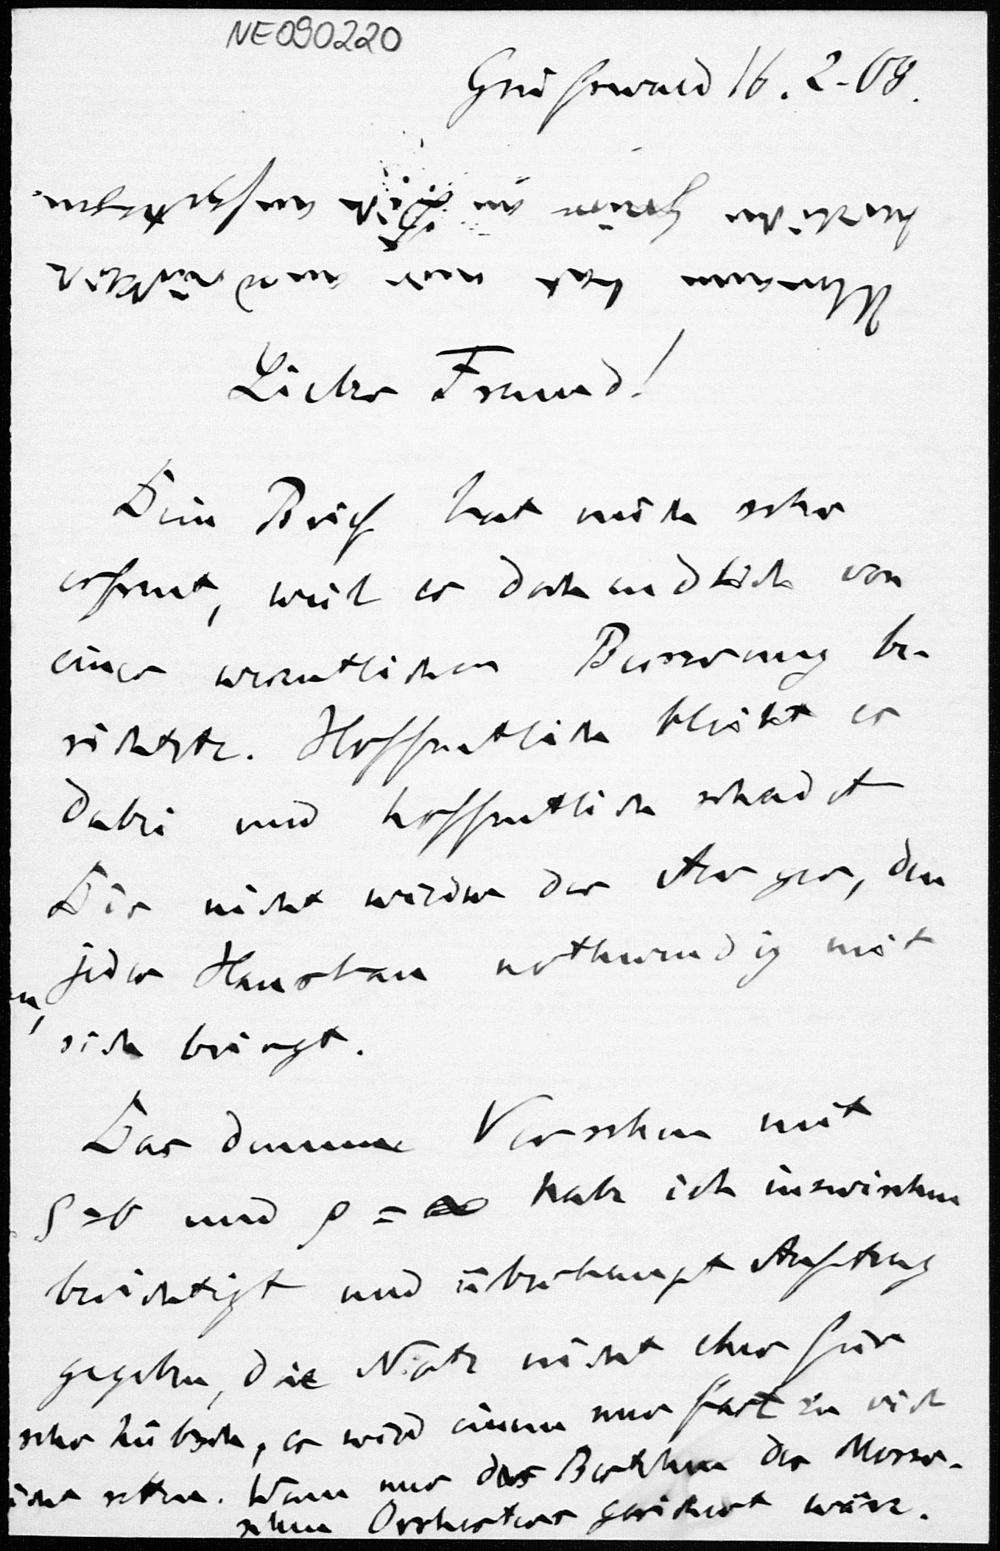 NE090220
Greifswald 16. 2. 08.
Ulmann hat mir ausdrücklich
herzliche Grüsse an Dich aufgetragen.
Lieber Freund!
Dein Brief hat mich sehr
erfreut, weil er doch endlich von
einer wesentlichen Besserung be-
richtete. Hoffentlich bleibt es
dabei und hoffentlich schadet
Dir nicht wieder der Aerger, den
jeder Hausbau nothwendig mit
sich bringt.
Das dumme Versehen mit
ρ=0 und ρ = ∞ habe ich inzwischen
berichtigt und überhaupt Auftrag
gegeben, die Note nicht eher für
sehr hübsch, es wird einem nur fast zu viel
setzen. Wenn nur das Bestehen des Messer-
schen Orchesters gesichert wäre.